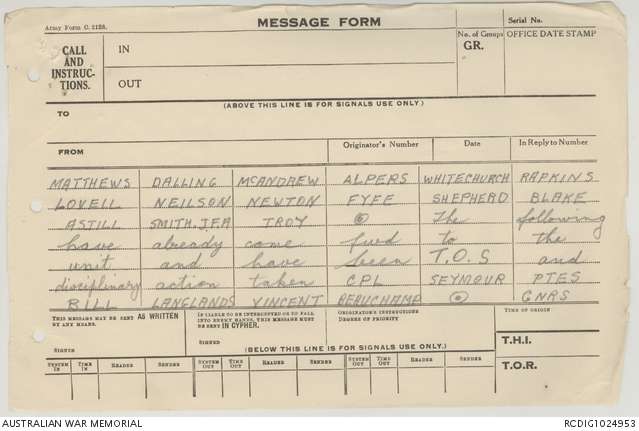 Army Form C. 2128.
MESSAGE FORM
Serial No.
CALL AND INSTRUC-TIONS.
IN
OUT
No. of Groups
GR.
OFFICE DATE STAMP
(ABOVE THIS LINE IS FOR SIGNALS USE ONLY.)
TO
FROM
Originator's Number
Date
In Reply to Number
MATTHEWS DALLING McANDREW ALPERS WHITECHURCH RAPKINS
LOVELL NEILSON NEWTON FYFE SHEPHERD BLAKE
ASTILL SMITH.J.F.A TROY ⊙ The following
have already come fwd to the
unit and have been T.O.S and
disciplinary action taken CPL SEYMOUR PTES
BILL LANGLANDS VINCENT BEAUCHAMP ⊙ GNRS
THIS MESSAGE MAY BE SENT AS WRITTEN BY ANY MEANS.
SIGNED
IF LIABLE TO BE INTERCEPTED OR TO FALL INTO ENEMY HANDS, THIS MESSAGE MUST BE SENT IN CYPHER.
SIGNED
ORIGINATOR'S INSTRUCTIONS DEGREE OF PRIORITY
TIME OF ORIGIN
(BELOW THIS LINE IS FOR SIGNALS USE ONLY.)
T.H.I.
T.O.R.
SYSTEM IN TIME IN READER SENDER SYSTEM OUT TIME OUT READER SENDER SYSTEM OUT TIME OUT READER SENDER
AUSTRALIAN WAR MEMORIAL
RCDIG1024953